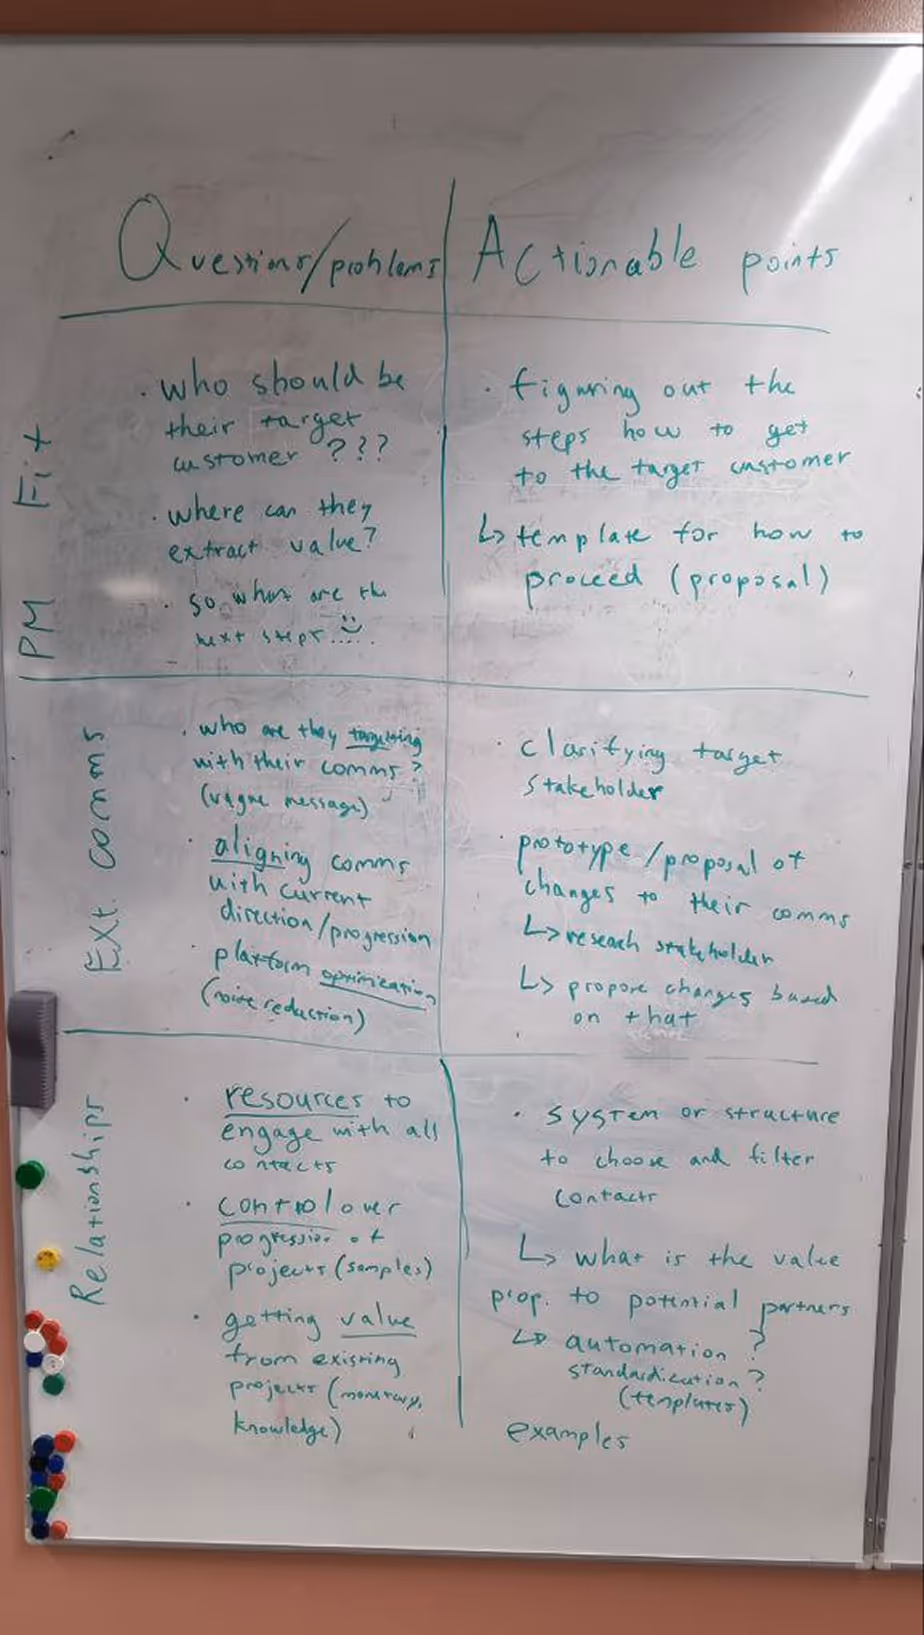 Questions/problems
Actionable points
PM Fit
· who should be
their target
customer ???
· where can they
extract value?
· so what are the
next steps.....
· figuring out the
steps how to get
to the target customer
↳ template for how to
proceed (proposal)
Ext. comms
· who are they targeting
with their comms?
(vague message)
· aligning comms
with current
direction/progression
platform optimization
(noise reduction)
· clarifying target
stakeholder
· prototype/proposal of
changes to their comms
↳ research stakeholder
↳ propose changes based
on that
Relationships
· resources to
engage with all
contacts
· control over
progression of
projects (samples)
· getting value
from existing
projects (monetary,
knowledge)
· system or structure
to choose and filter
contacts
↳ what is the value
prop. to potential partners
↳ automation ?
standardization ?
(templates)
examples